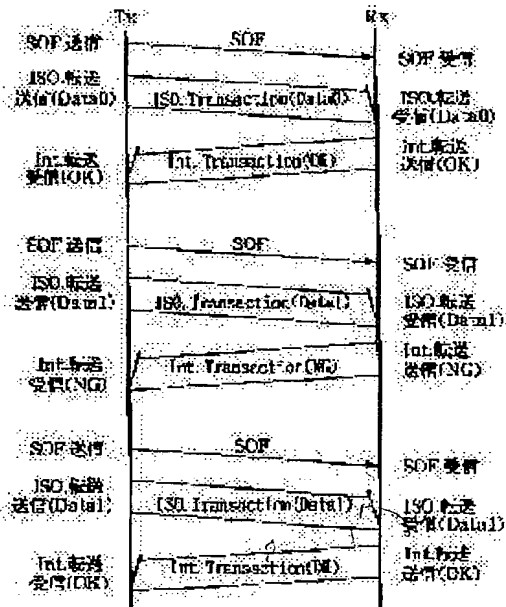 Tx Rx
SOF 送信 SOF SOF 受信
ISO.転送
送信(Data0) ISO.Transaction(Data0) ISO.転送
受信(Data0)
Int.転送
受信(OK) Int.Transaction(OK) Int.転送
送信(OK)
SOF 送信 SOF SOF 受信
ISO.転送
送信(Data1) ISO.Transaction(Data1) ISO.転送
受信(Data1)
Int.転送
受信(NG) Int.Transaction(NG) Int.転送
送信(NG)
SOF 送信 SOF SOF 受信
ISO.転送
送信(Data1) ISO.Transaction(Data1) ISO.転送
受信(Data1)
Int.転送
受信(OK) Int.Transaction(OK) Int.転送
送信(OK)